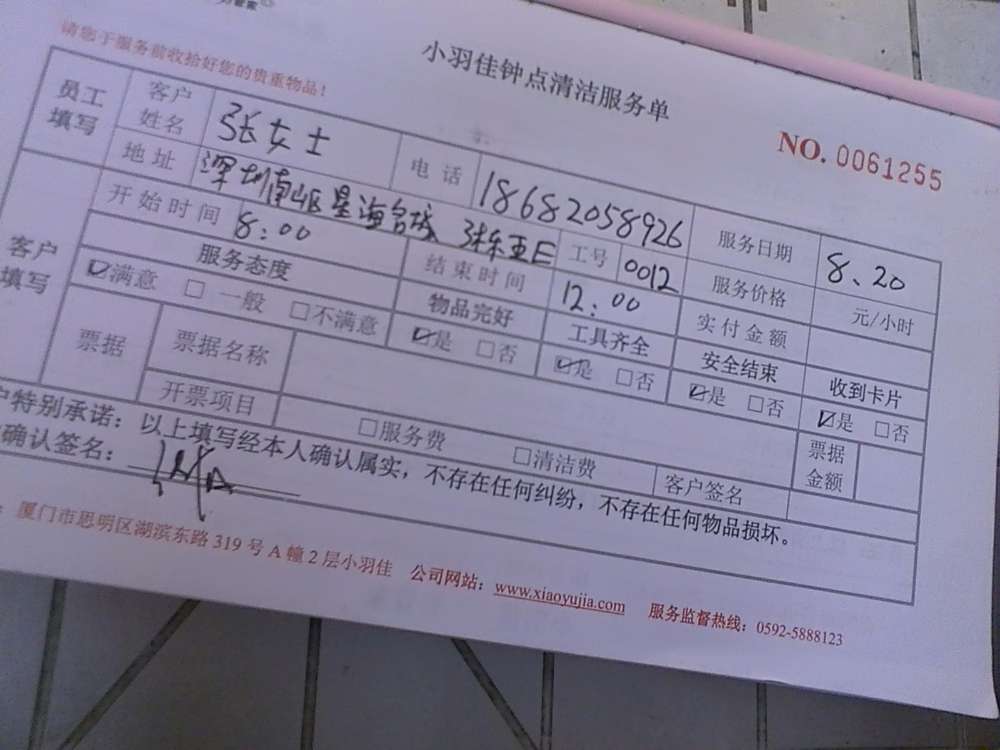 请您于服务前收拾好您的贵重物品！
小羽佳钟点清洁服务单
NO. 0061255
员工填写 客户姓名 张女士 电话 18682058926 服务日期 8.20
地址 深圳南山区星海名城 工号 0012 服务价格 元/小时
客户填写 开始时间 8:00 结束时间 12:00 实付金额
服务态度 物品完好 工具齐全 安全结束 收到卡片
☑满意 □一般 □不满意 ☑是 □否 ☑是 □否 ☑是 □否 ☑是 □否
票据 票据名称 票据金额
开票项目 □服务费 □清洁费 客户签名
特别承诺：以上填写经本人确认属实，不存在任何纠纷，不存在任何物品损坏。
确认签名：
厦门市思明区湖滨东路 319 号 A 幢 2 层小羽佳 公司网站：www.xiaoyujia.com 服务监督热线：0592-5888123